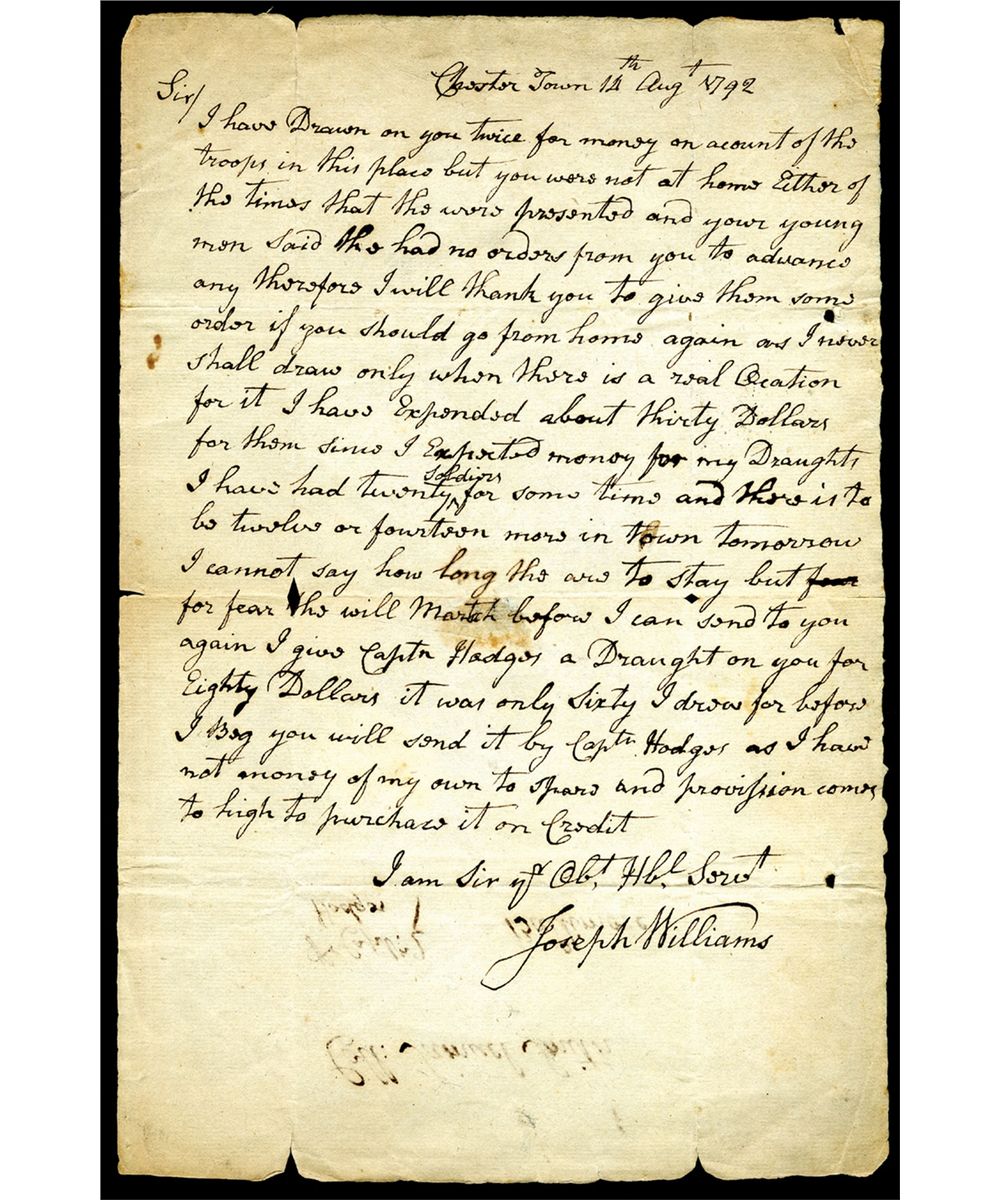 Chester Town 14th Augt 1792
Sir/
I have Drawn on you twice for money on acount of the
troops in this place but you were not at home Either of
the times that the were presented and your young
men said the had no orders from you to advance
any therefore I will thank you to give them some
order if you should go from home again as I never
shall draw only when there is a real Ocation
for it I have Expended about thirty Dollars
for them since I Expected money for my Draughts
I have had twenty soldiers for some time and there is to
be twelve or fourteen more in town tomorrow
I cannot say how long the are to stay but fear
for fear the will March before I can send to you
again I give Captn Hodges a Draught on you for
Eighty Dollars it was only Sixty I drew for before
I Beg you will send it by Captn Hodges as I have
not money of my own to spare and provission comes
to high to purchase it on Credit
I am Sir yr Obt. Hbl. Servt
Joseph Williams
Hodges